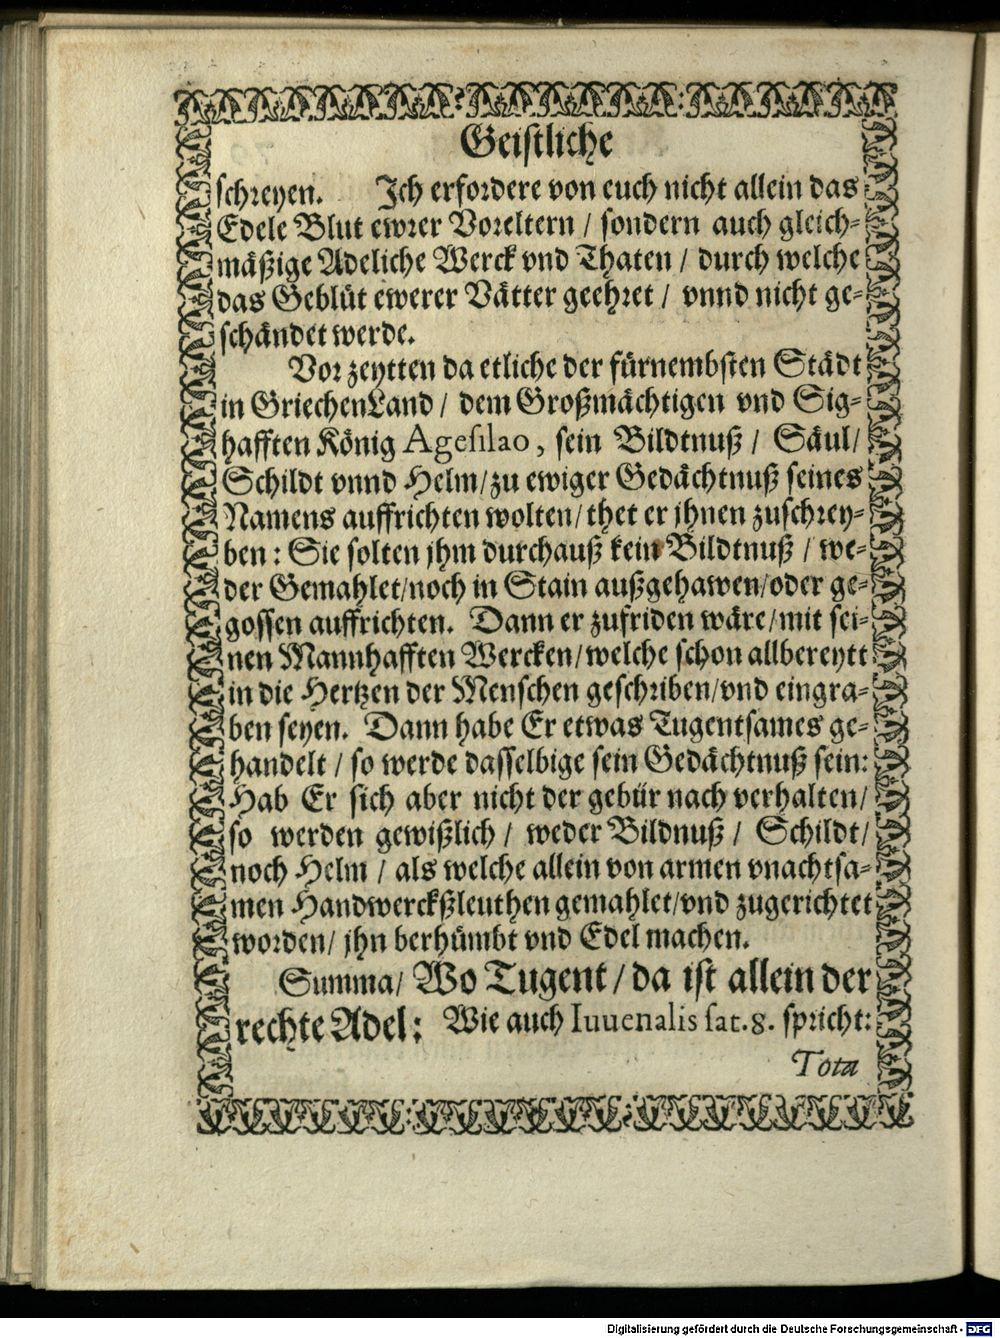 Geistliche
schreyen. Ich erfordere von euch nicht allein das
Edele Blut ewrer Voreltern / sondern auch gleich-
mäßige Adeliche Werck vnd Thaten / durch welche
das Geblüt ewerer Vätter geehret / vnnd nicht ge-
schändet werde.
Vor zeytten da etliche der fürnembsten Städt
in GriechenLand / dem Großmächtigen vnd Sig-
hafften König Agesilao, sein Bildtnuß / Säul /
Schildt vnnd Helm / zu ewiger Gedächtnuß seines
Namens auffrichten wolten / thet er jhnen zuschrey-
ben : Sie solten jhm durchauß kein Bildtnuß / we-
der Gemahlet / noch in Stain außgehawen / oder ge-
gossen auffrichten. Dann er zufriden wäre / mit sei-
nen Mannhafften Wercken / welche schon allbereytt
in die Hertzen der Menschen geschriben / vnd eingra-
ben seyen. Dann habe Er etwas Tugentsames ge-
handelt / so werde dasselbige sein Gedächtnuß sein:
Hab Er sich aber nicht der gebür nach verhalten /
so werden gewißlich / weder Bildnuß / Schildt /
noch Helm / als welche allein von armen vnachtsa-
men Handwerckßleuthen gemahlet / vnd zugerichtet
worden / jhn berhümbt vnd Edel machen.
Summa / Wo Tugent / da ist allein der
rechte Adel : Wie auch Iuuenalis sat. 8. spricht:
Tota
Digitalisierung gefördert durch die Deutsche Forschungsgemeinschaft - DFG